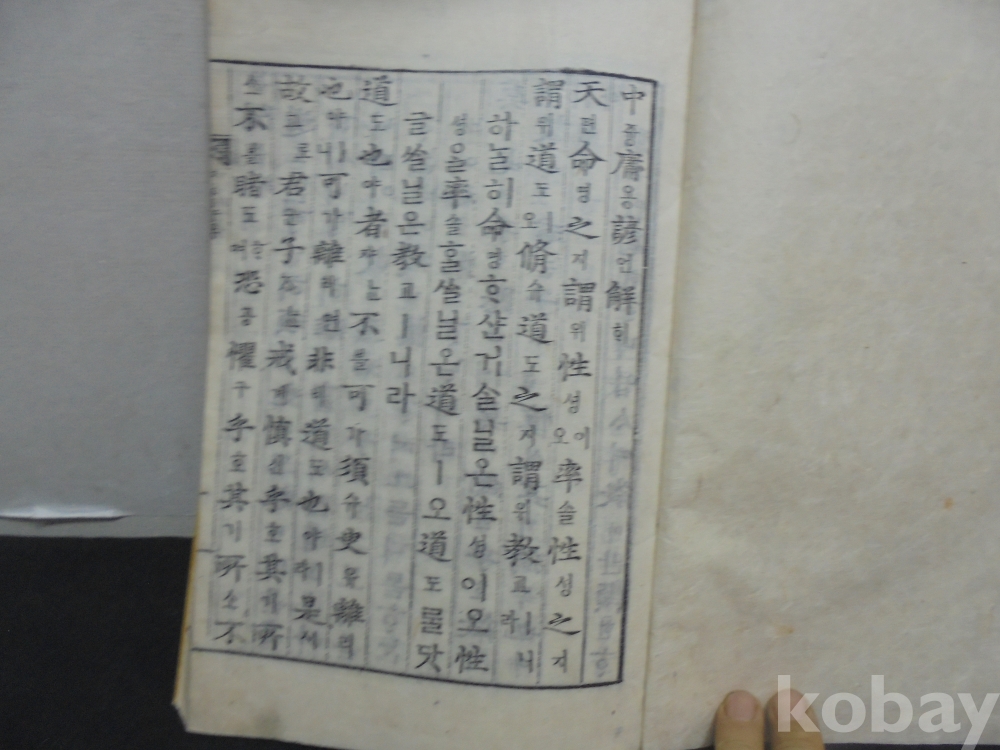 中듕庸용諺언解ᄒᆡ
天텬命명之지謂위性셩이오率솔性셩之지
謂위道도ㅣ오脩슈道도之지謂위教교ㅣ니라
하ᄂᆞᆯ히命명ᄒᆞ샨거ᄉᆞᆯ닐온性셩이오性
셩을率솔홀ᄭᅥᆯ닐온道도ㅣ오道도ᄅᆞᆯ닷
글ᄭᅥᆯ닐온教교ㅣ니라
道도也야者쟈ᄂᆞᆫ不블可가須슈臾유離리
也야ㅣ니可가離리면非비道도也야ㅣ라是시
故고로君군子ᄌᆞᄂᆞᆫ戒계愼신乎호其기所
소不블睹도ᄒᆞ며恐공懼구乎호其기所소不
kobay